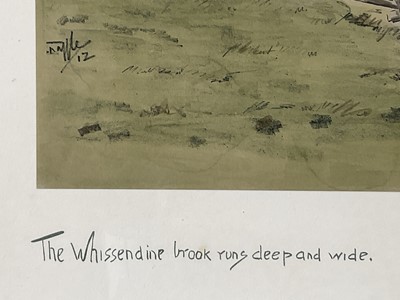 12
The Whissendine brook runs deep and wide.